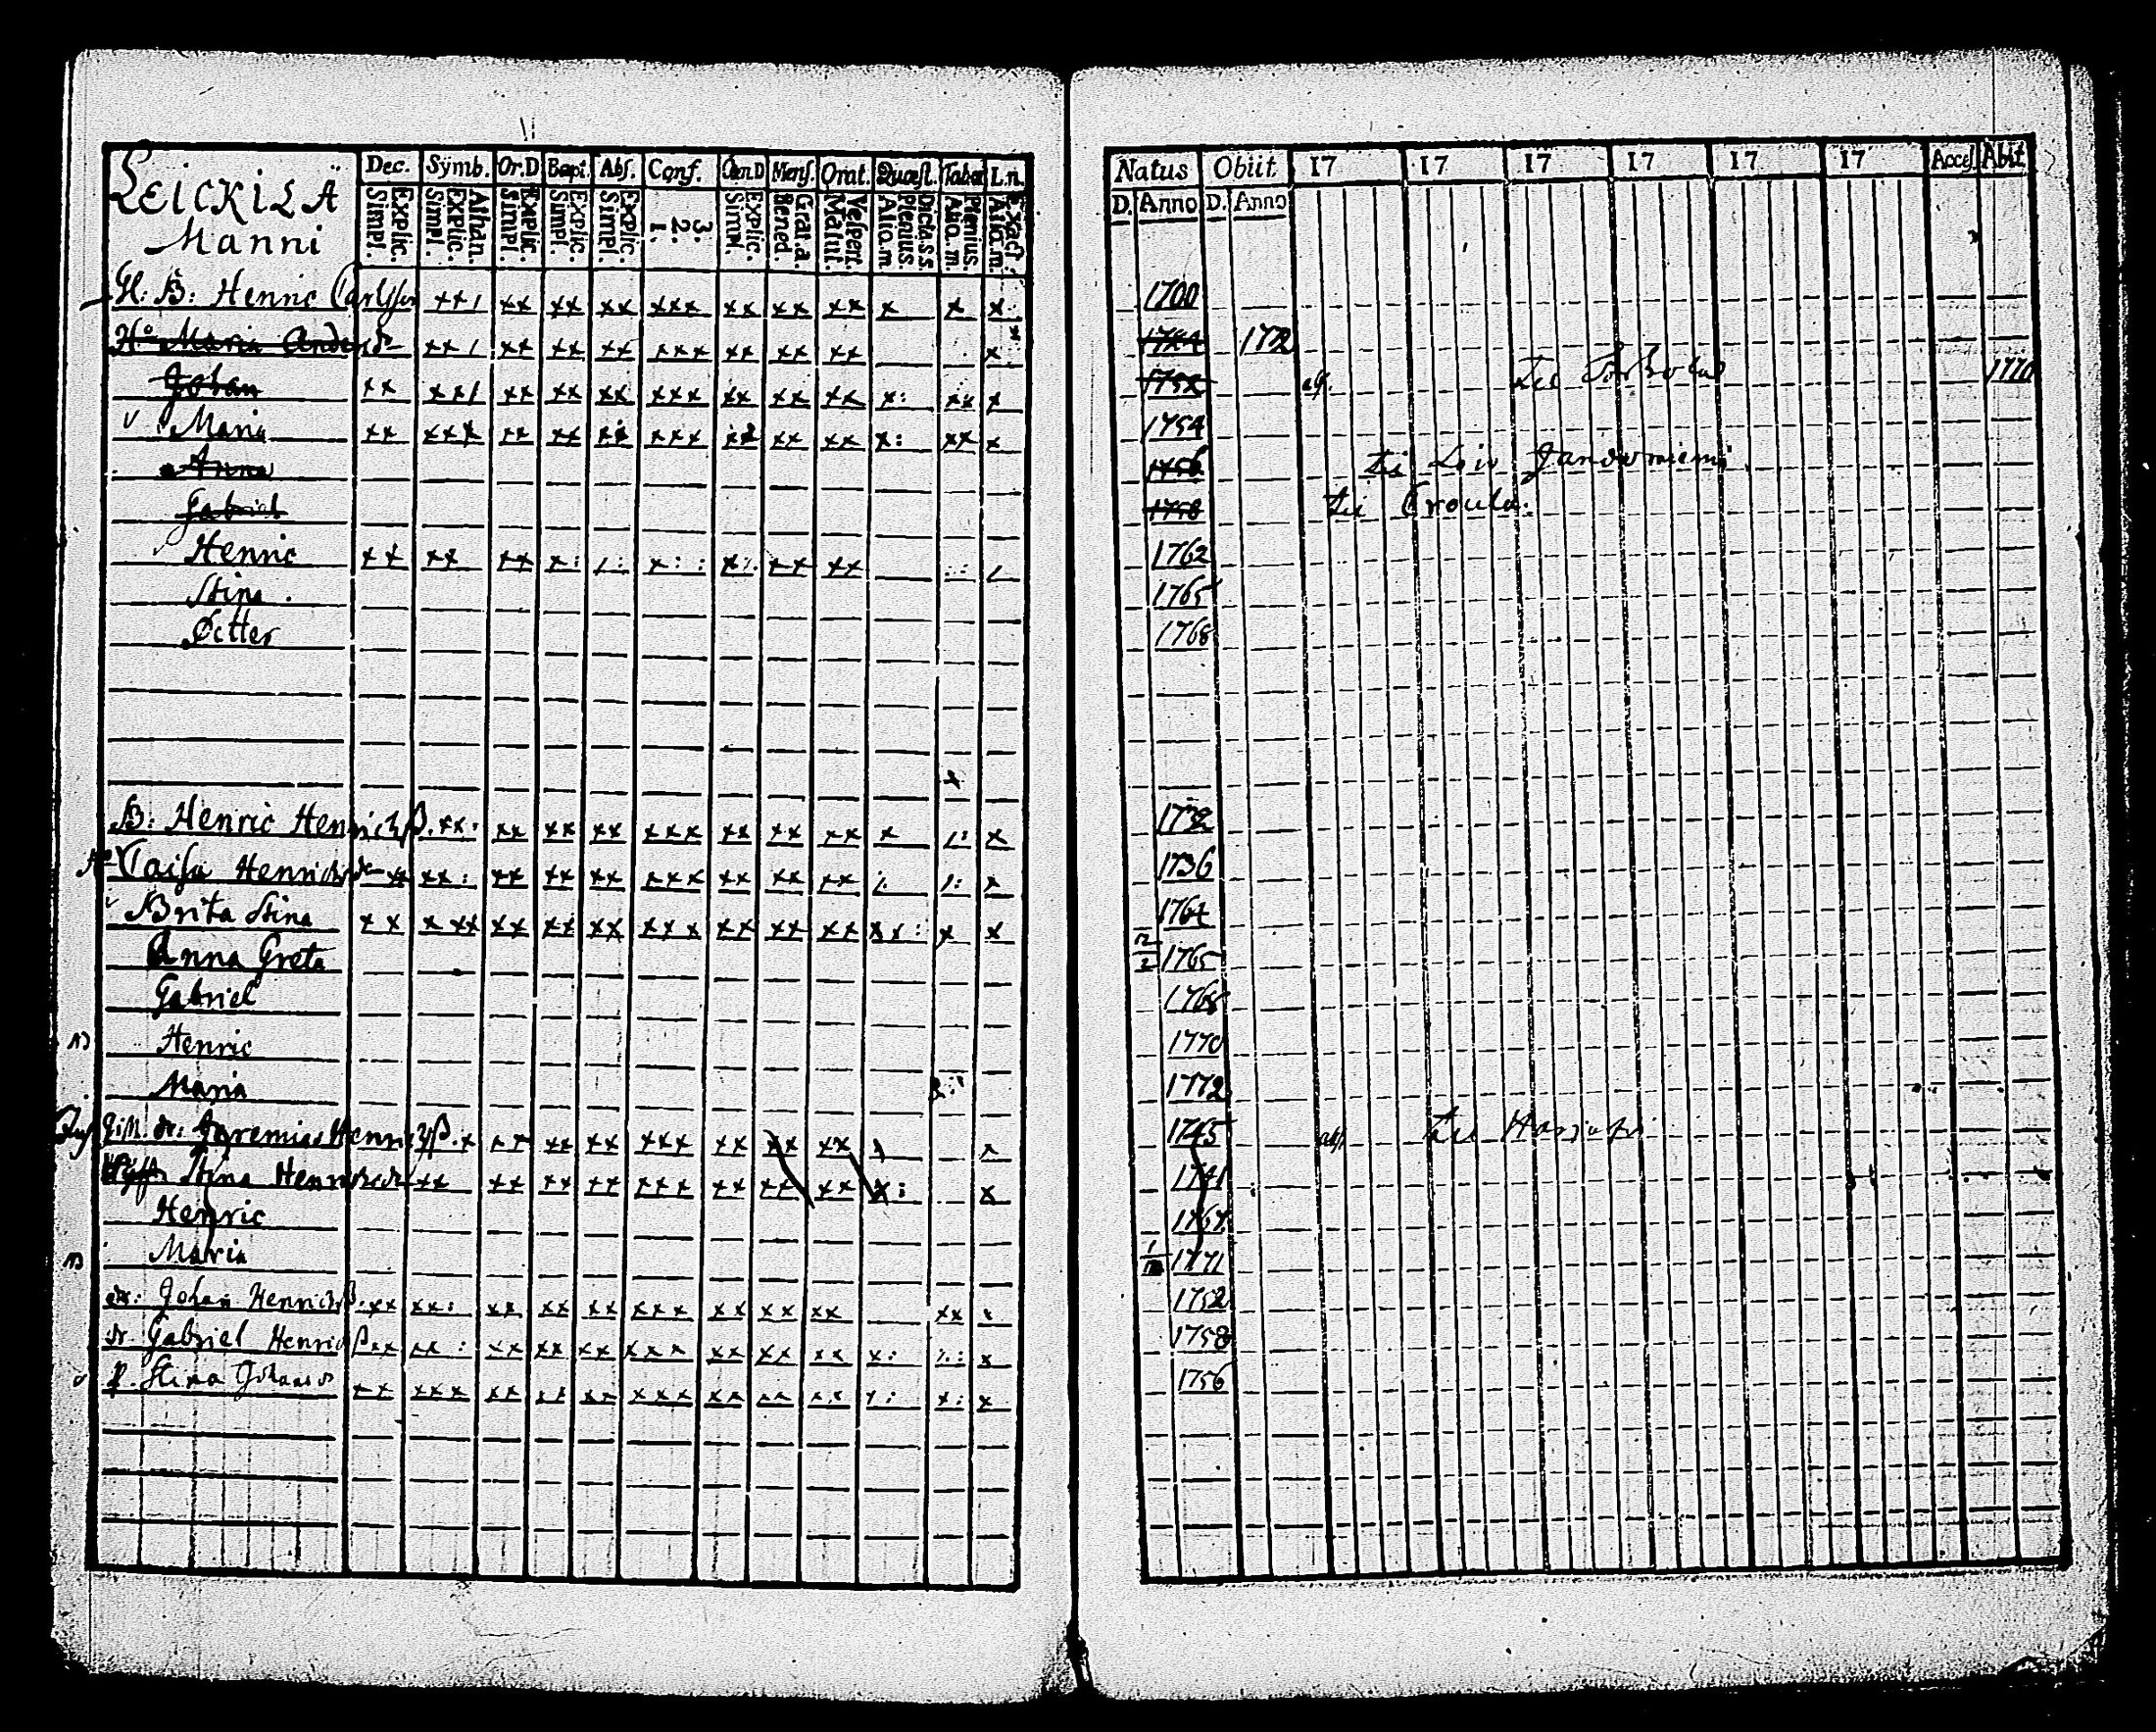 LEICKILÄ
Manni
Dec. Symb. Or.D Bapt. Abs. Conf. Cœn.D Mens. Orat. Quæst. Tabœ L.n.
Explic. Simpl. Athan. Explic. Simpl. Explic. Simpl. Explic. Simpl. Explic. Simpl. 3. 2. 1. Explic. Simpl. Grat.a. Bened. Vespert. Matut. Dicta.s.s. Plenius. Alio.m Plenius. Alio.m. Exact. Alio.m.
Natus Obiit 17 17 17 17 17 17 Acces. Abit
D. Anno D. Anno
Gl: B: Henric Carlsson xx/ xx xx xx xxx xx xx xx x x x 1700
H:o Maria Anders dr xx/ xx xx xx xxx xx xx xx x 1772
Johan xx xx/ xx xx xx xxx xx xx xx x: xx x 1752 1770
Maria xx xxx xx xx xx xxx xx xx xx x: xx x 1754
Anna 1756
Gabriel 1758
Henric xx xx xx x: /: x:: x/. xx xx / 1762
Stina 1765
Petter 1768
B: Henric Henricsß. xx: xx xx xx xxx xx xx xx x /: x 1732
Caisa Henrichs dr xx xx: xx xx xx xxx xx xx xx /. /: x 1736
Brita Stina xx xxx xx xx xx xxx xx xx xx xx: x x 1764
Anna Greta 12/2 1765
Gabriel 1768
NB Henric 1770
Maria 1772
dr: Jeremias Henricsß. x xx xx xx xxx xx xx xx x x 1745
Stina Henrichsdr xx xx xx xx xxx xx xx xx x: x 1741
Henric 1767
NB Maria 1771
dr: Johan Henrichsß. xx xx: xx xx xx xxx xx xx xx xx x 1752
dr. Gabriel Henricsß xx xx: xx xx xx xxx xx xx xx x: /.: x 1758
p. Stina Johans dr xx xxx xx xx xx xxx xx xx xx /: x: x 1756